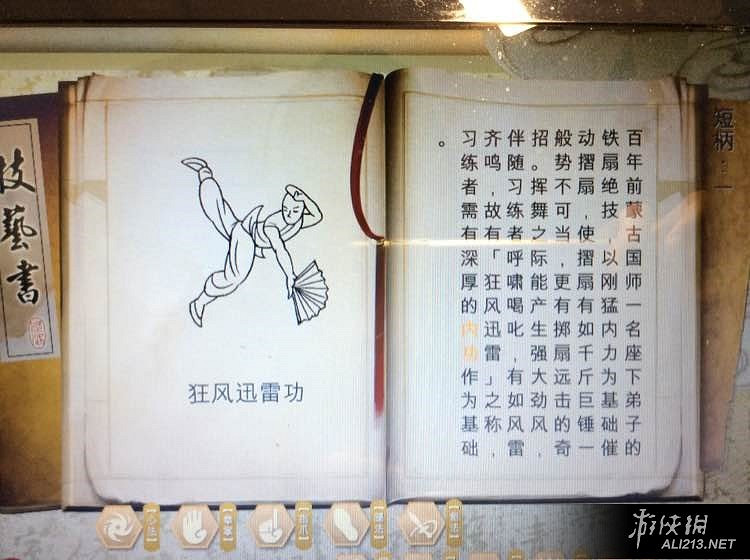 技藝書
狂风迅雷功
短柄：一
百年前蒙古国师一名座下弟子的
铁扇绝技，以刚猛内力为基础催
动摺扇，使摺扇有如千斤巨锤一
般势不可当，更有掷扇远击的奇
招。挥舞之际能产生强大劲风，
伴随习练者呼啸喝叱，有如风雷
齐鸣，故有「狂风迅雷」之称，
习练者需有深厚的内功作为基础
。
游侠網
ALI213.NET